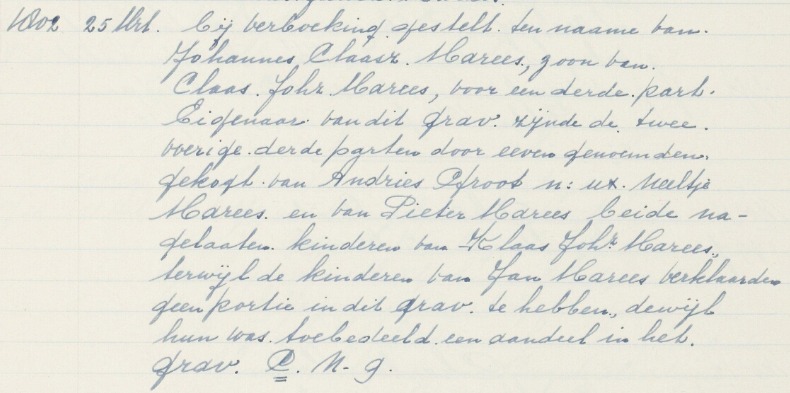 1802 25 Mrt. bij verboeking gestelt. ten naame van.
Johannes, Claasz. Marees, zoon van.
Claas. Johz. Marees, voor een derde. part.
Eigenaar van dit grav. zijnde de. twee.
overige. derde parten door eeven genoemden.
gekogt. van Andries Groot n: ux. Neeltje
Marees. en van Pieter Marees beide na-
gelaaten. kinderen van Klaas Johz. Marees.,
terwijl de kinderen van Jan Marees verklaarden
geen portie in dit grav. te hebben, dewijl
hun was. toebedeeld. een aandeel in het.
grav. C. N- 9.